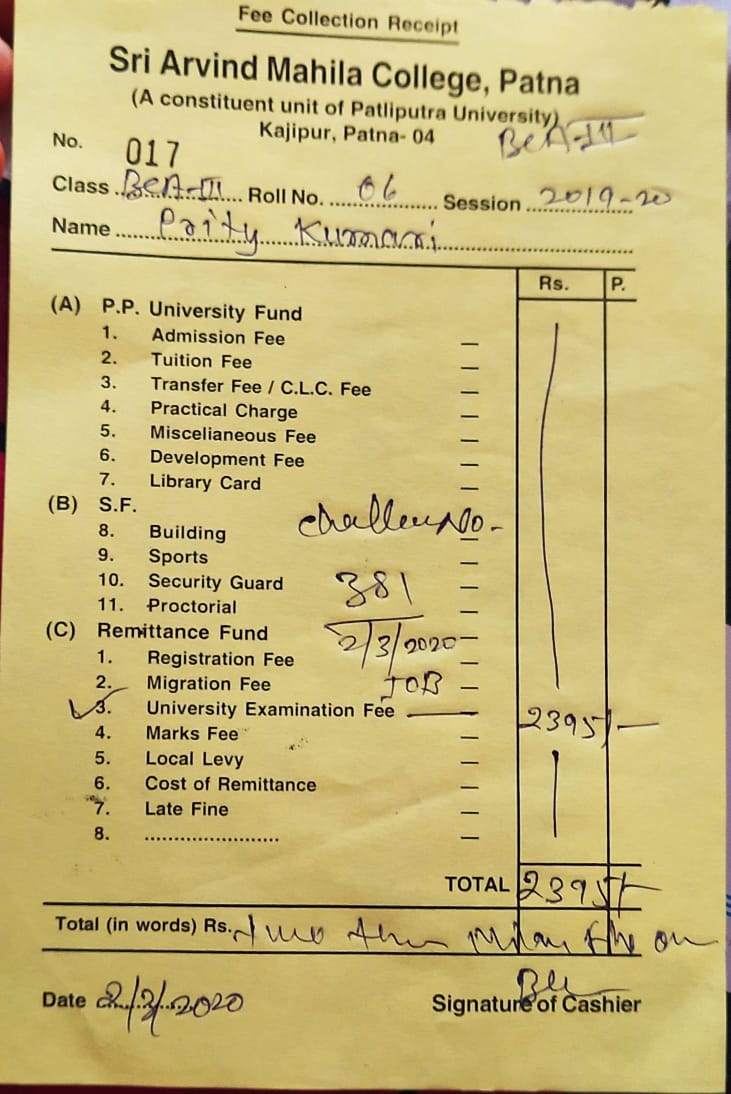 Fee Collection Receipt
Sri Arvind Mahila College, Patna
(A constituent unit of Patliputra University)
Kajipur, Patna- 04
BCA-III
No. 017
Class BCA-III Roll No. 06 Session 2019-20
Name Prity Kumari
Rs. P.
(A) P.P. University Fund
1. Admission Fee –
2. Tuition Fee –
3. Transfer Fee / C.L.C. Fee –
4. Practical Charge –
5. Miscelianeous Fee –
6. Development Fee –
7. Library Card –
(B) S.F.
8. Building – challan No-
9. Sports –
10. Security Guard 381 –
11. Proctorial –
(C) Remittance Fund 2/3/2020 –
1. Registration Fee –
2. Migration Fee IOB –
3. University Examination Fee – 2395/-
4. Marks Fee –
5. Local Levy –
6. Cost of Remittance –
7. Late Fine –
8. ........................ –
TOTAL 2395/-
Total (in words) Rs. Two
Date 2/3/2020 Signature of Cashier